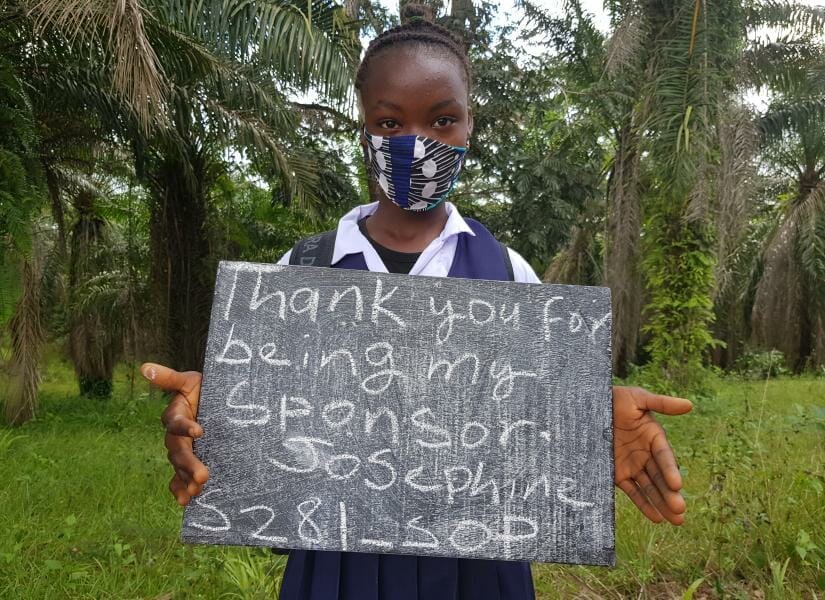 Thank you for
being my
Sponsor.
Josephine
S281_SOP